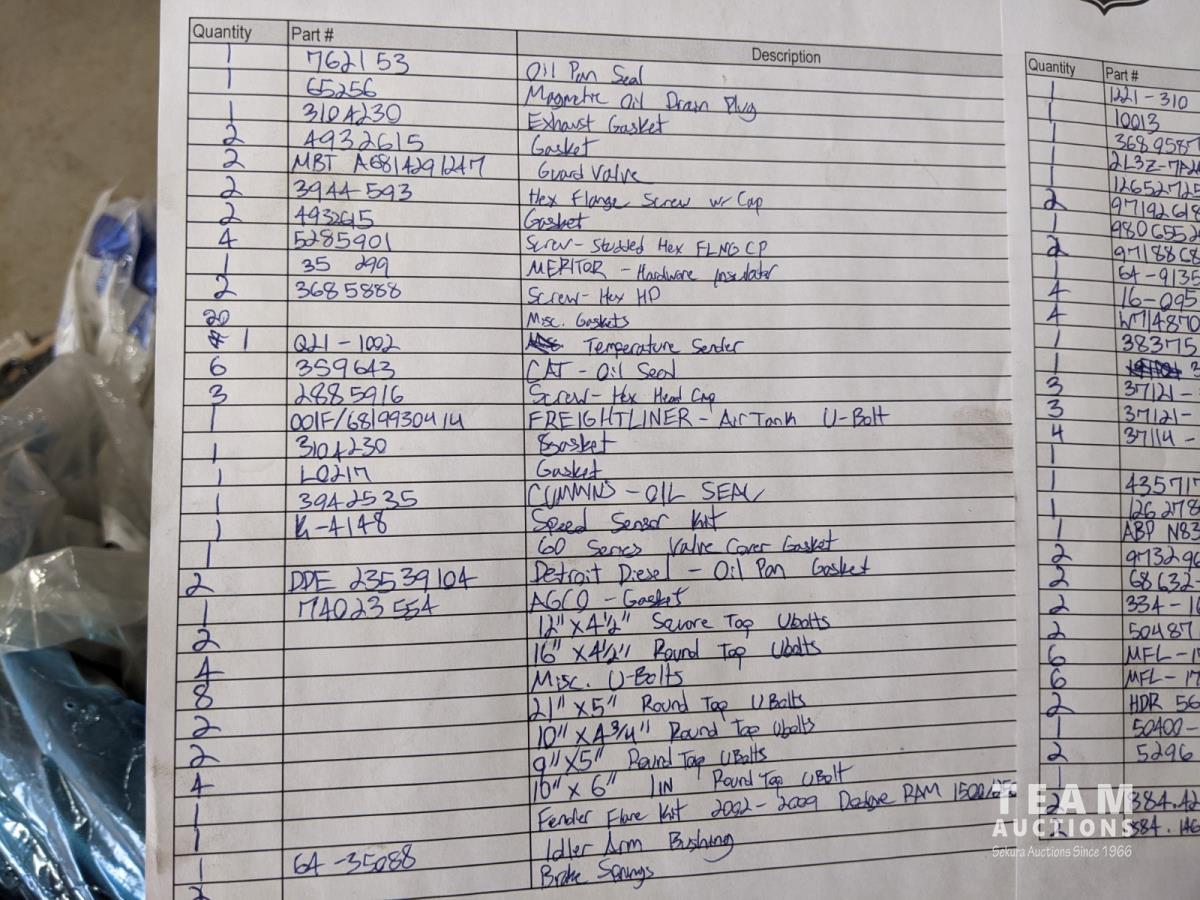 Quantity Part # Description
1 762153 Oil Pan Seal
1 65256 Magnetic Oil Drain Plug
1 3104230 Exhaust Gasket
2 4932615 Gasket
2 MBT A6814291247 Guard Valve
2 3944-593 Hex Flange Screw w/ Cap
2 4932615 Gasket
4 5285901 Screw- Studded Hex FLNG CP
1 35 299 MERITOR - Hardware Insulator
2 3685888 Screw- Hex HD
20 Misc. Gaskets
1 Q21-1002 Temperature Sender
6 359643 CAT - Oil Seal
3 2885916 Screw- Hex Head Cap
1 001F/6819930414 FREIGHTLINER - Air Tank U-Bolt
1 3104230 Gasket
1 L0217 Gasket
1 3942535 CUMMINS - OIL SEAL
1 K-4148 Speed Sensor Kit
1 60 Series Valve Cover Gasket
2 DDE 23539104 Detroit Diesel - Oil Pan Gasket
1 74023554 AGCO - Gasket
2 12" x 4 1/2" Square Top Ubolts
4 16" x 4 1/2" Round Top Ubolts
8 Misc. U-Bolts
2 21" x 5" Round Top U Bolts
2 10" x 4 3/4" Round Top Ubolts
4 9" x 5" Round Top UBolts
1 10" x 6" 1 IN Round Top UBolt
1 Fender Flare Kit 2002-2009 Dodge RAM 1500/
1 64-35088 Idler Arm Bushing
2 Brake Springs
Quantity Part #
1 1221-310
1 10013
1 3689587
1 2L3Z-7A2
1 12652725
2 97192618
1 9806552
2 9718868
1 64-9135
4 16-095
4 W714870
1 38375
1 3
3 37121-
3 37121-
4 37114-
1
1 435717
1 126278
1 ABP N83
2 973296
2 68632
2 334-16
2 50487
6 MFL-17
6 MFL-17
2 HDR 56
1 50400-
2 5296
1
2 384.42
2 384.146
TEAM
AUCTIONS
Sekura Auctions Since 1966